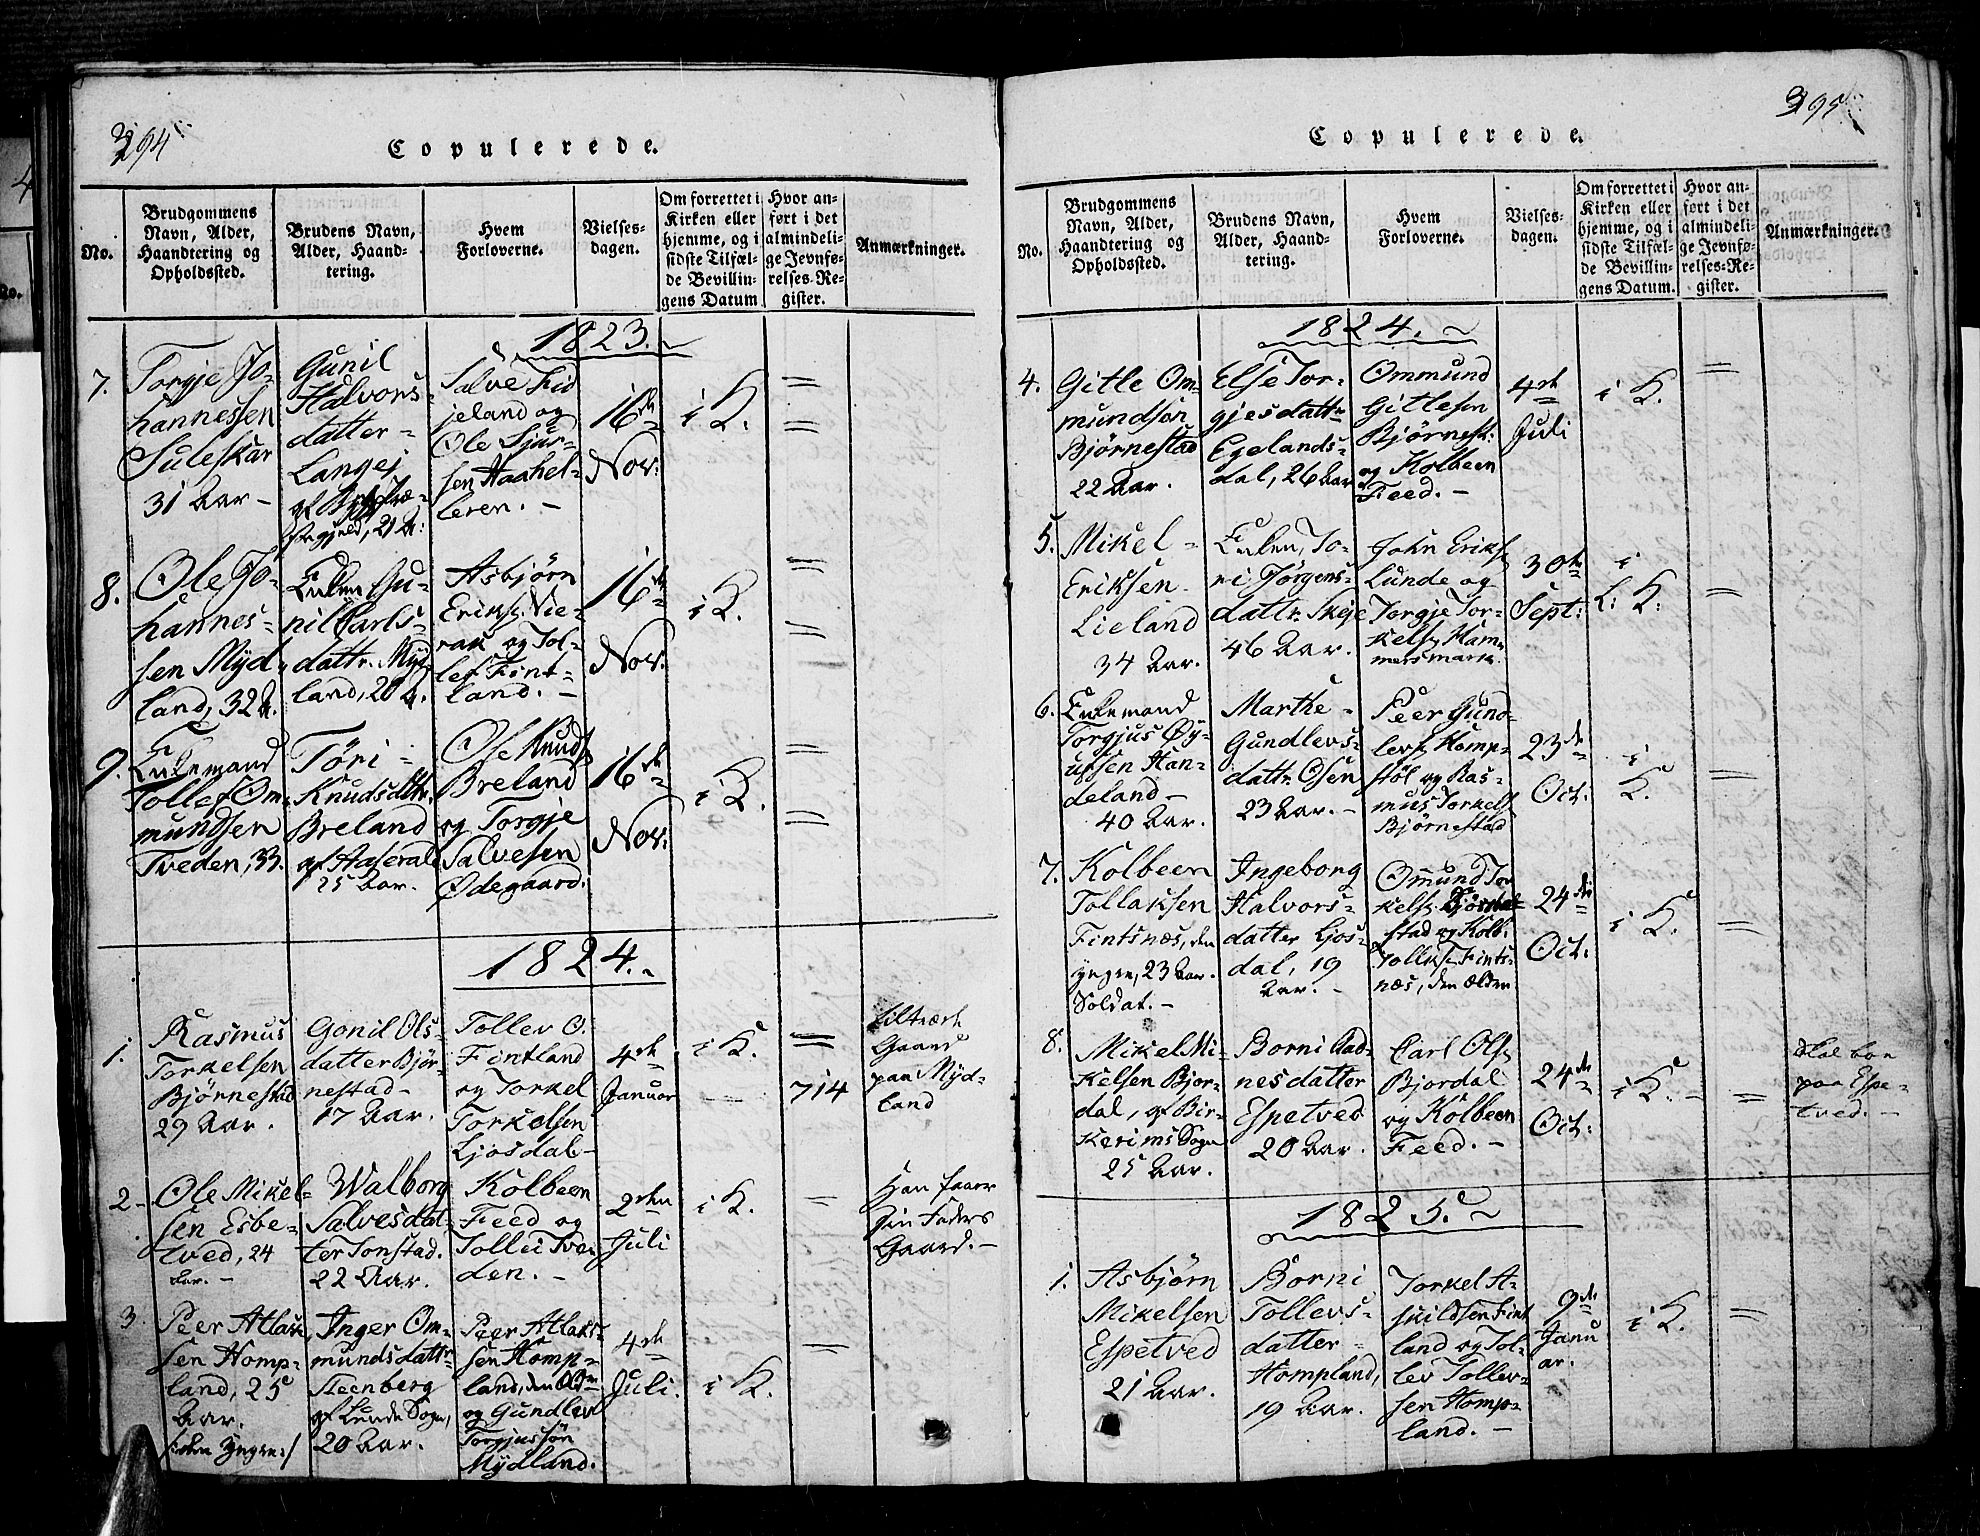 294
Copulerede.
No.
Brudgommens
Navn, Alder,
Haandtering og
Opholdssted.
Brudens Navn,
Alder, Haand-
tering.
Hvem
Forloverne.
Vielses-
dagen.
Om forrettet i
Kirken eller
hjemme, og i
sidste Tilfæl-
de Bevillin-
gens Datum
Hvor an-
ført i det
almindeli-
ge Jevnfø-
relses-Re-
gister.
Anmærkninger.
1823.
7.
Torgje Jo-
hannessen
Suleskar
31 Aar -
Gunil
Halvors-
datter -
Langej
af
21 A:
Salve Fid
jeland og
Ole Sjur-
sen Haahel-
leren. -
16de
Nov:
i K.
=
=
8.
Ole Jo-
hannes-
sen Myd-
land, 32 A.
Enken Gu-
nil Carls-
dattr. Myd-
land, 20 A.
Asbjørn
Eriks. Vie-
rak og Tol-
lef Fint-
land. -
16de
Nov.
i K.
=
=
9.
Enkemand
Tollef Om-
mundsen
Tveden, 33.
Töri -
Knudsdttr.
Breland
af Aaseral
25 Aar.
Ole Knuds
Breland
og Torgje
Salvesen
Ødegaard.
16de
Nov:
i K.
=
=
1824.
1.
Rasmus
Torkelsen
Bjørnestad
29 Aar.
Gonil Ols-
datter Bjør-
nestad -
17 Aar.
Tollev O.
Fintland
og Torkel
Torkelsen
Ljosdal -
4de
Januar
i K.
=
714
Gaard
paa Myd-
land
2.
Ole Mikel-
sen Esbe-
tved, 24
Aar. -
Walborg
Salvesdat-
ter Tonstad.
22 Aar.
Kolbeen
Feed og
Tollei Tve-
den. -
2den
Juli
i K.
=
Han faaer
sin Faders
Gaard. -
3
Peer Atlak-
sen Homp-
land, 25
Aar.
/:den Yngre:/
Inger Om-
mundsdattr
Steenberg
af Lunde Sogn,
20 Aar.
Peer Atlaks-
sen Homp-
land, den Eldre
og Gundlev
Torgjussön
Mydland.
4de
Juli.
i K.
=
395
Copulerede.
No.
Brudgommens
Navn, Alder,
Haandtering og
Opholdssted.
Brudens Navn,
Alder, Haand-
tering.
Hvem
Forloverne.
Vielses-
dagen.
Om forrettet i
Kirken eller
hjemme, og i
sidste Tilfæl-
de Bevillin-
gens Datum.
Hvor an-
ført i det
almindeli-
ge Jevnfø-
relses-Re-
gister.
Anmærkninger.
1824.
4.
Gitle Om-
mundsön
Bjørnestad
22 Aar.
Else Tor-
gjesdattr
Egelands-
dal, 26 Aar
Ommund
Gitlesen
Bjørnest:
og Kolbeen
Feed. -
4de
Juli
i K.
=
5.
Mikel -
Eriksen
Lieland
34 Aar.
Enken, To-
ri Jörgens-
dattr. Skeje
46 Aar.
John Eriks
Lunde og
Torgje Tor-
kels. Ham-
mersmark.
30te
Sept:
i
L: K:
=
6.
Enkemand
Torgjus Øy-
ufsen Han-
deland -
40 Aar.
Marthe -
Gundlevs-
dattr Osen
23 Aar. -
Peer Gund-
levs. Homp-
støl og Ras-
mus Torkels
Bjørnestad
23de
Oct:
i
K.
=
7.
Kolbeen
Tollaksen
Fintsnæs, den
yngre, 23 Aar.
Soldat. -
Ingeborg
Halvors-
datter Ljos-
dal, 19
Aar. -
Ommund Tor
kels. Bjørne-
stad og Kolb.
Tollaks. Fints-
næs, den Eldre.
24de
Oct:
i K.
=
8.
Mikel Mi-
kelsen Bjor-
dal, af Bir-
kerims Sogn
25 Aar.
Borni Aad-
nesdatter
Espetved
20 Aar.
Carl Ols.
Bjordal
og Kolbeen
Feed. -
24de
Oct:
i K. -
=
Skal boe
paa Espe-
tved. -
1825.
1.
Asbjørn
Mikelsen
Espetved
21 Aar.
Borni
Tollevs-
datter -
Hompland,
19 Aar.
Torkel A-
skildsen Fint
land og Tol-
lev Tollev-
sen Homp-
land. -
9de
Janu
ar.
i K.
=